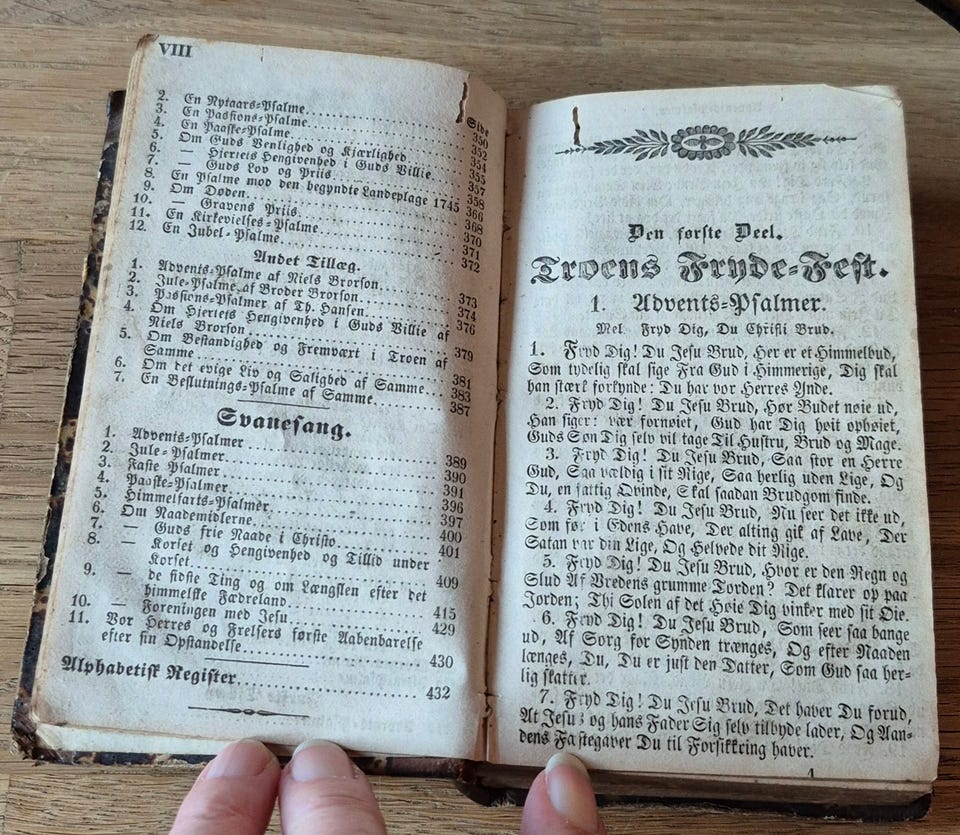 VIII
Side
2. En Nytaars-Psalme. 350
3. En Passions-Psalme. 352
4. En Paaske-Psalme. 354
5. Om Guds Venlighed og Kjærlighed 355
6. — Hjertets Hengivenhed i Guds Villie. 357
7. — Guds Lov og Priis. 358
8. En Psalme mod den begyndte Landeplage 1745 366
9. Om Døden. 368
10. — Gravens Priis. 370
11. En Kirkevielses-Psalme. 371
12. En Jubel-Psalme. 372
Andet Tillæg.
1. Advents-Psalme af Niels Brorson. 373
2. Jule-Psalme af Broder Brorson. 374
3. Passions-Psalmer af Th. Hansen. 376
4. Om Hjertets Hengivenhed i Guds Villie af
Niels Brorson. 379
5. Om Bestandighed og Fremvært i Troen af
Samme 381
6. Om det evige Liv og Salighed af Samme. 383
7. En Beslutnings-Psalme af Samme. 387
Svanesang.
1. Advents-Psalmer 389
2. Jule-Psalmer. 390
3. Faste Psalmer 391
4. Paaske-Psalmer 396
5. Himmelfarts-Psalmer 397
6. Om Naademidlerne. 400
7. — Guds frie Naade i Christo. 401
8. — Korset og Hengivenhed og Tillid under
Korset. 409
9. — de sidste Ting og om Længslen efter det
himmelske Fædreland. 415
10. — Foreningen med Jesu. 429
11. Vor Herres og Frelsers første Aabenbarelse
efter sin Opstandelse 430
Alphabetisk Register. 432
Den første Deel.
Troens Fryde-Fest.
1. Advents-Psalmer.
Mel. Fryd Dig, Du Christi Brud.
1. Fryd Dig! Du Jesu Brud, Her er et Himmelbud,
Som tydelig skal sige Fra Gud i Himmerige, Dig skal
han stærk forkynde: Du har vor Herres Ynde.
2. Fryd Dig! Du Jesu Brud, Hør Budet nøie ud,
Han siger: vær fornøiet, Gud har Dig høit ophøiet,
Guds Søn Dig selv vil tage Til Hustru, Brud og Mage.
3. Fryd Dig! Du Jesu Brud, Saa stor en Herre
Gud, Saa vældig i sit Rige, Saa herlig uden Lige, Og
Du, en fattig Qvinde, Skal saadan Brudgom finde.
4. Fryd Dig! Du Jesu Brud, Nu seer det ikke ud,
Som før i Edens Have, Der alting gik af Lave, Der
Satan var din Lige, Og Helvede dit Rige.
5. Fryd Dig! Du Jesu Brud, Hvor er den Regn og
Slud Af Vredens grumme Torden? Det klarer op paa
Jorden; Thi Solen af det Høie Dig vinker med sit Øie.
6. Fryd Dig! Du Jesu Brud, Som seer saa bange
ud, Af Sorg for Synden trænges, Og efter Naaden
længes, Du, Du er just den Datter, Som Gud saa her-
lig skatter.
7. Fryd Dig! Du Jesu Brud, Det haver Du forud,
At Jesus og hans Fader Sig selv tilbyde lader, Og Aan-
dens Fæstegaver Du til Forsikkring haver.
1